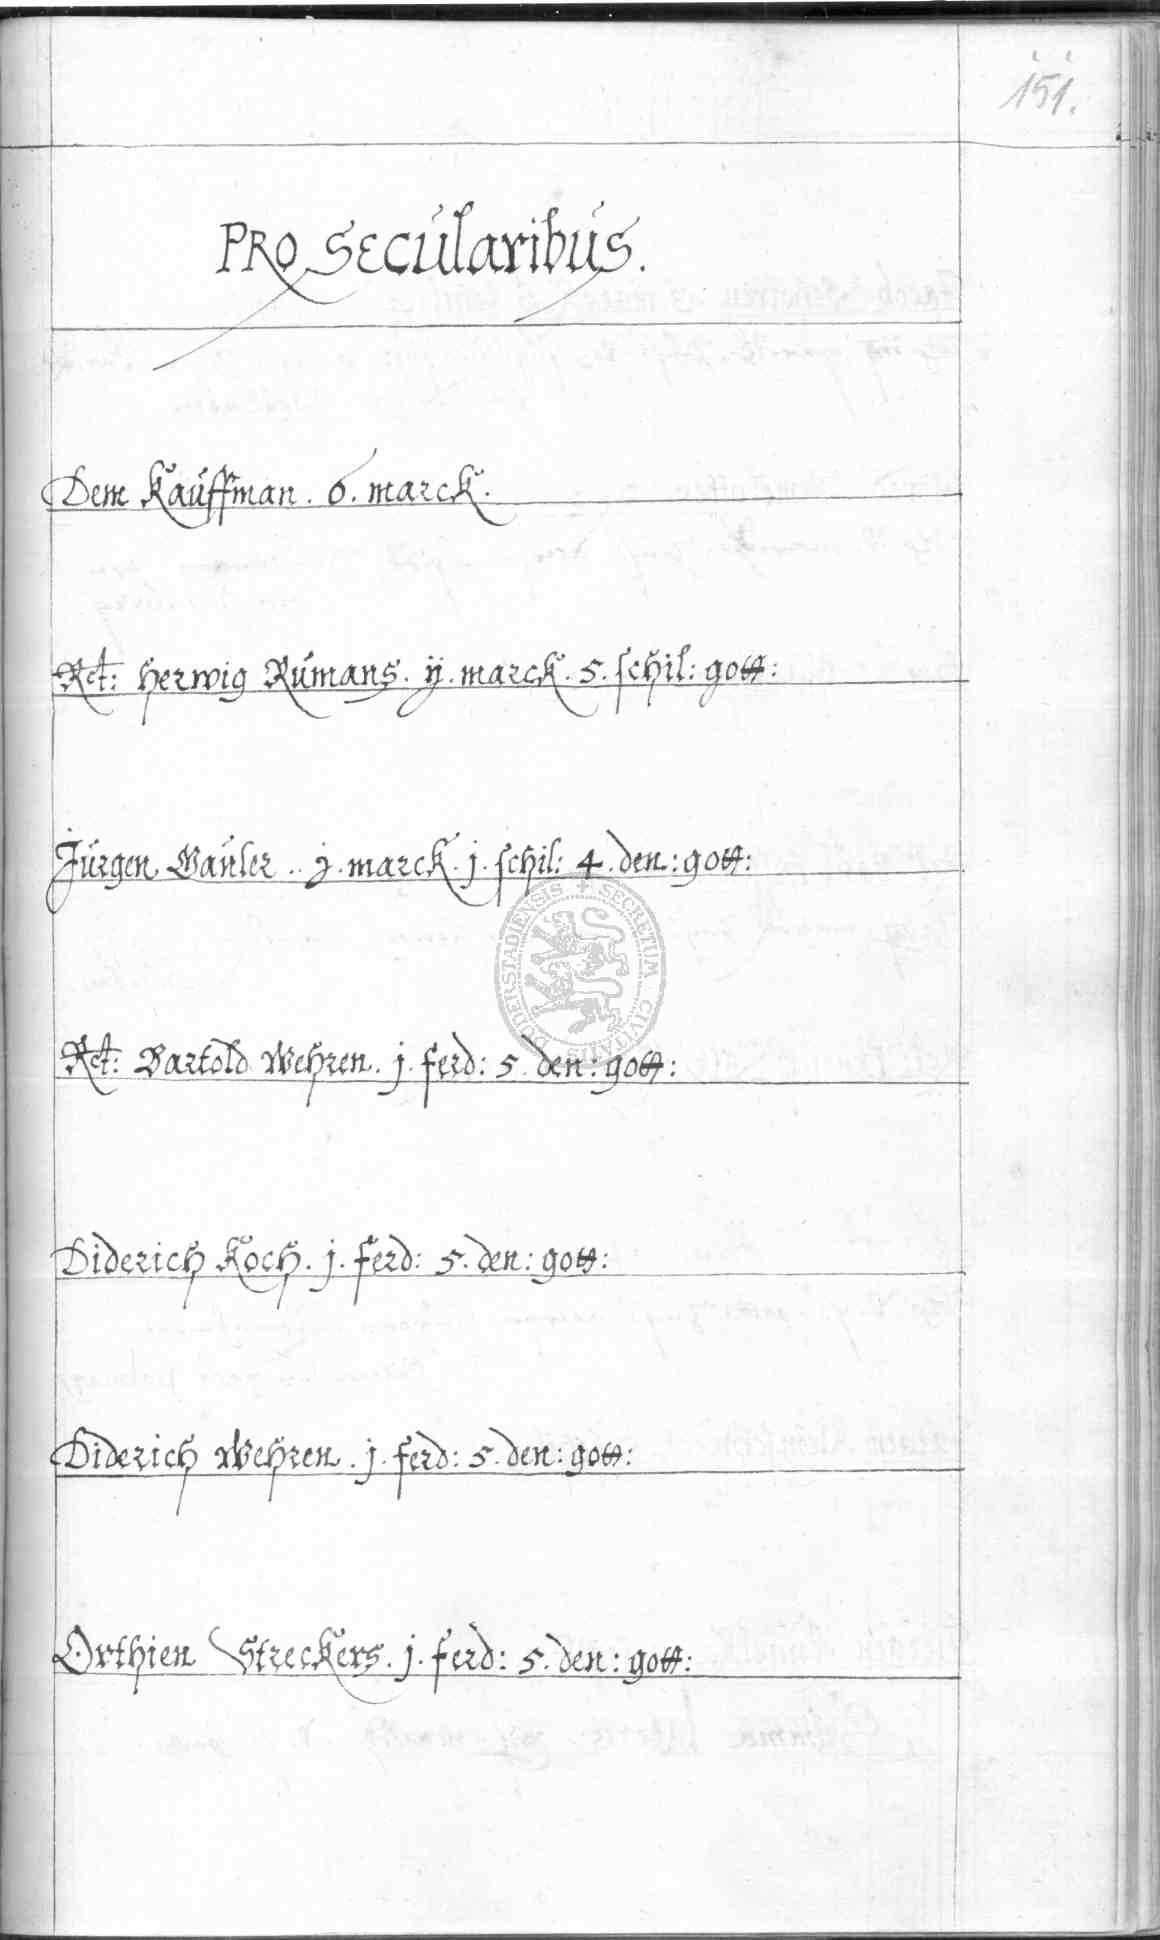 151.
PRO SECULARIBUS.
Dem Kauffman. 6. marck.
Rct: Herwig Rumans. ij. marck. 5. schil: gott:
Jürgen Bauler.. j. marck. j. schil: 4. den: gott:
DUDERSTADIENSIS + SECRETUM CIVITATIS
Rct: Bartold Wehren. j. ferd: 5. den: gott:
Diderich Koch. j. ferd: 5. den: gott:
Diderich Wehren. j. ferd: 5. den: gott:
Orthien Streckers. j. ferd: 5. den: gott: